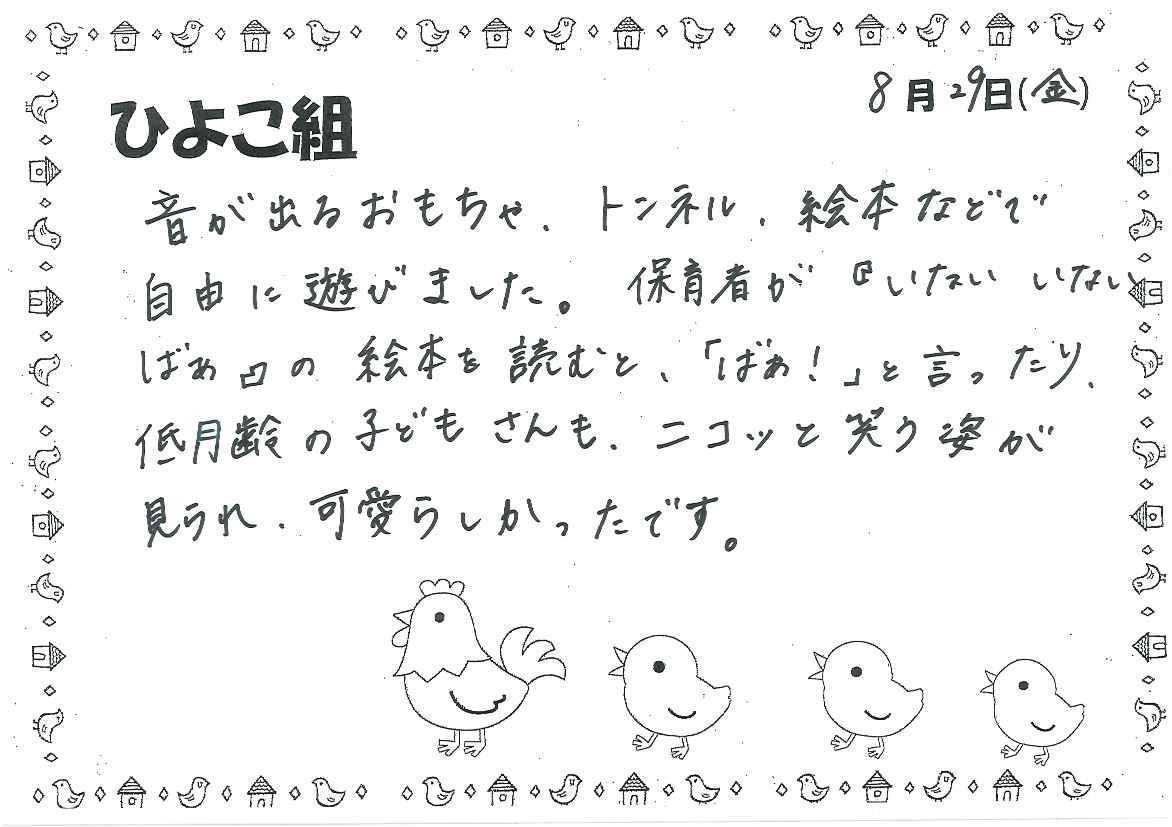 8月29日(金)
ひよこ組
音が出るおもちゃ、トンネル、絵本などで
自由に遊びました。保育者が『いない いない
ばぁ』の絵本を読むと、「ばぁ!」と言ったり、
低月齢の子どもさんも、ニコッと笑う姿が
見られ、可愛らしかったです。